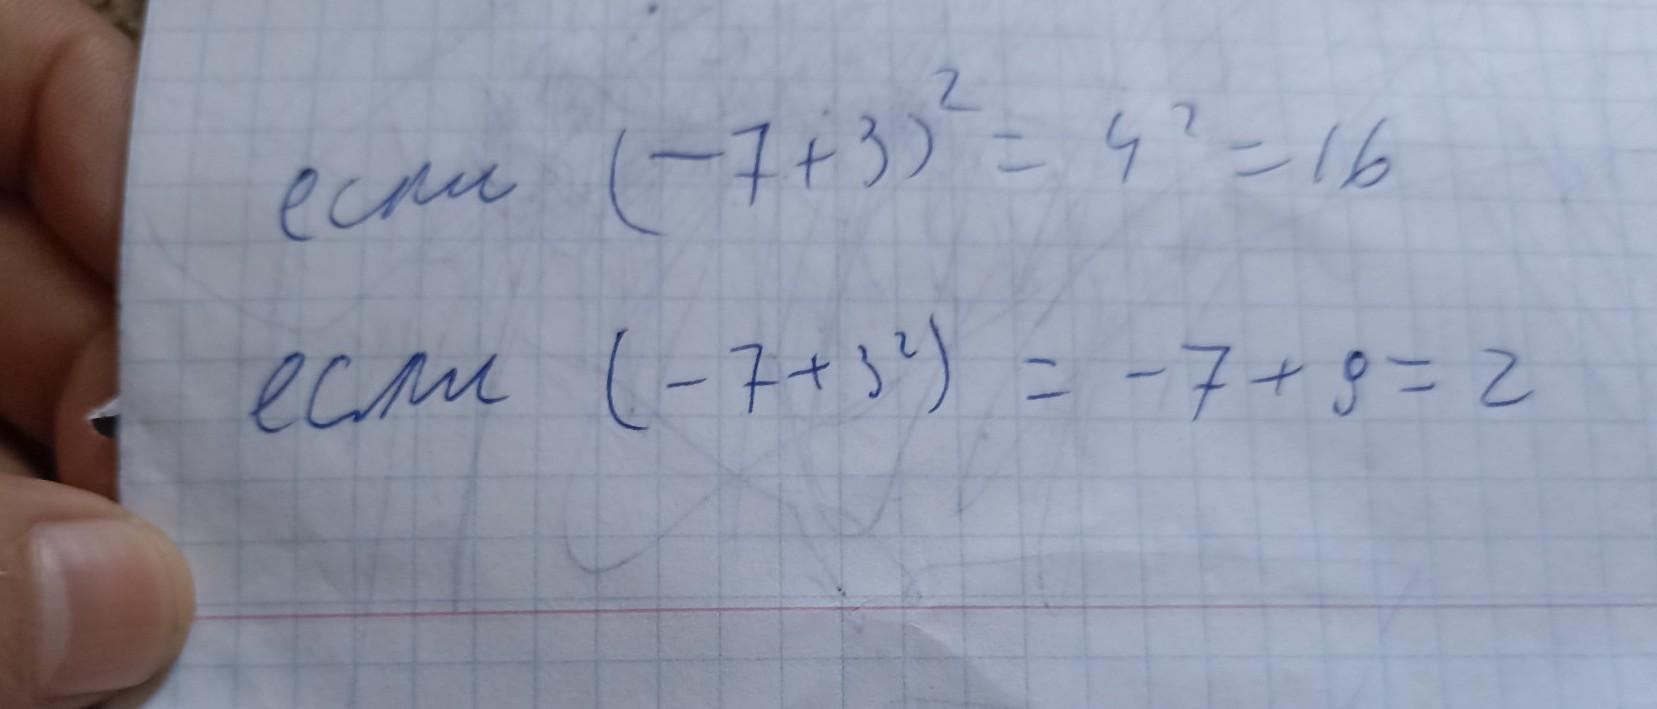 если (-7+3)² = 4² = 16
если (-7+3²) = -7+9=2